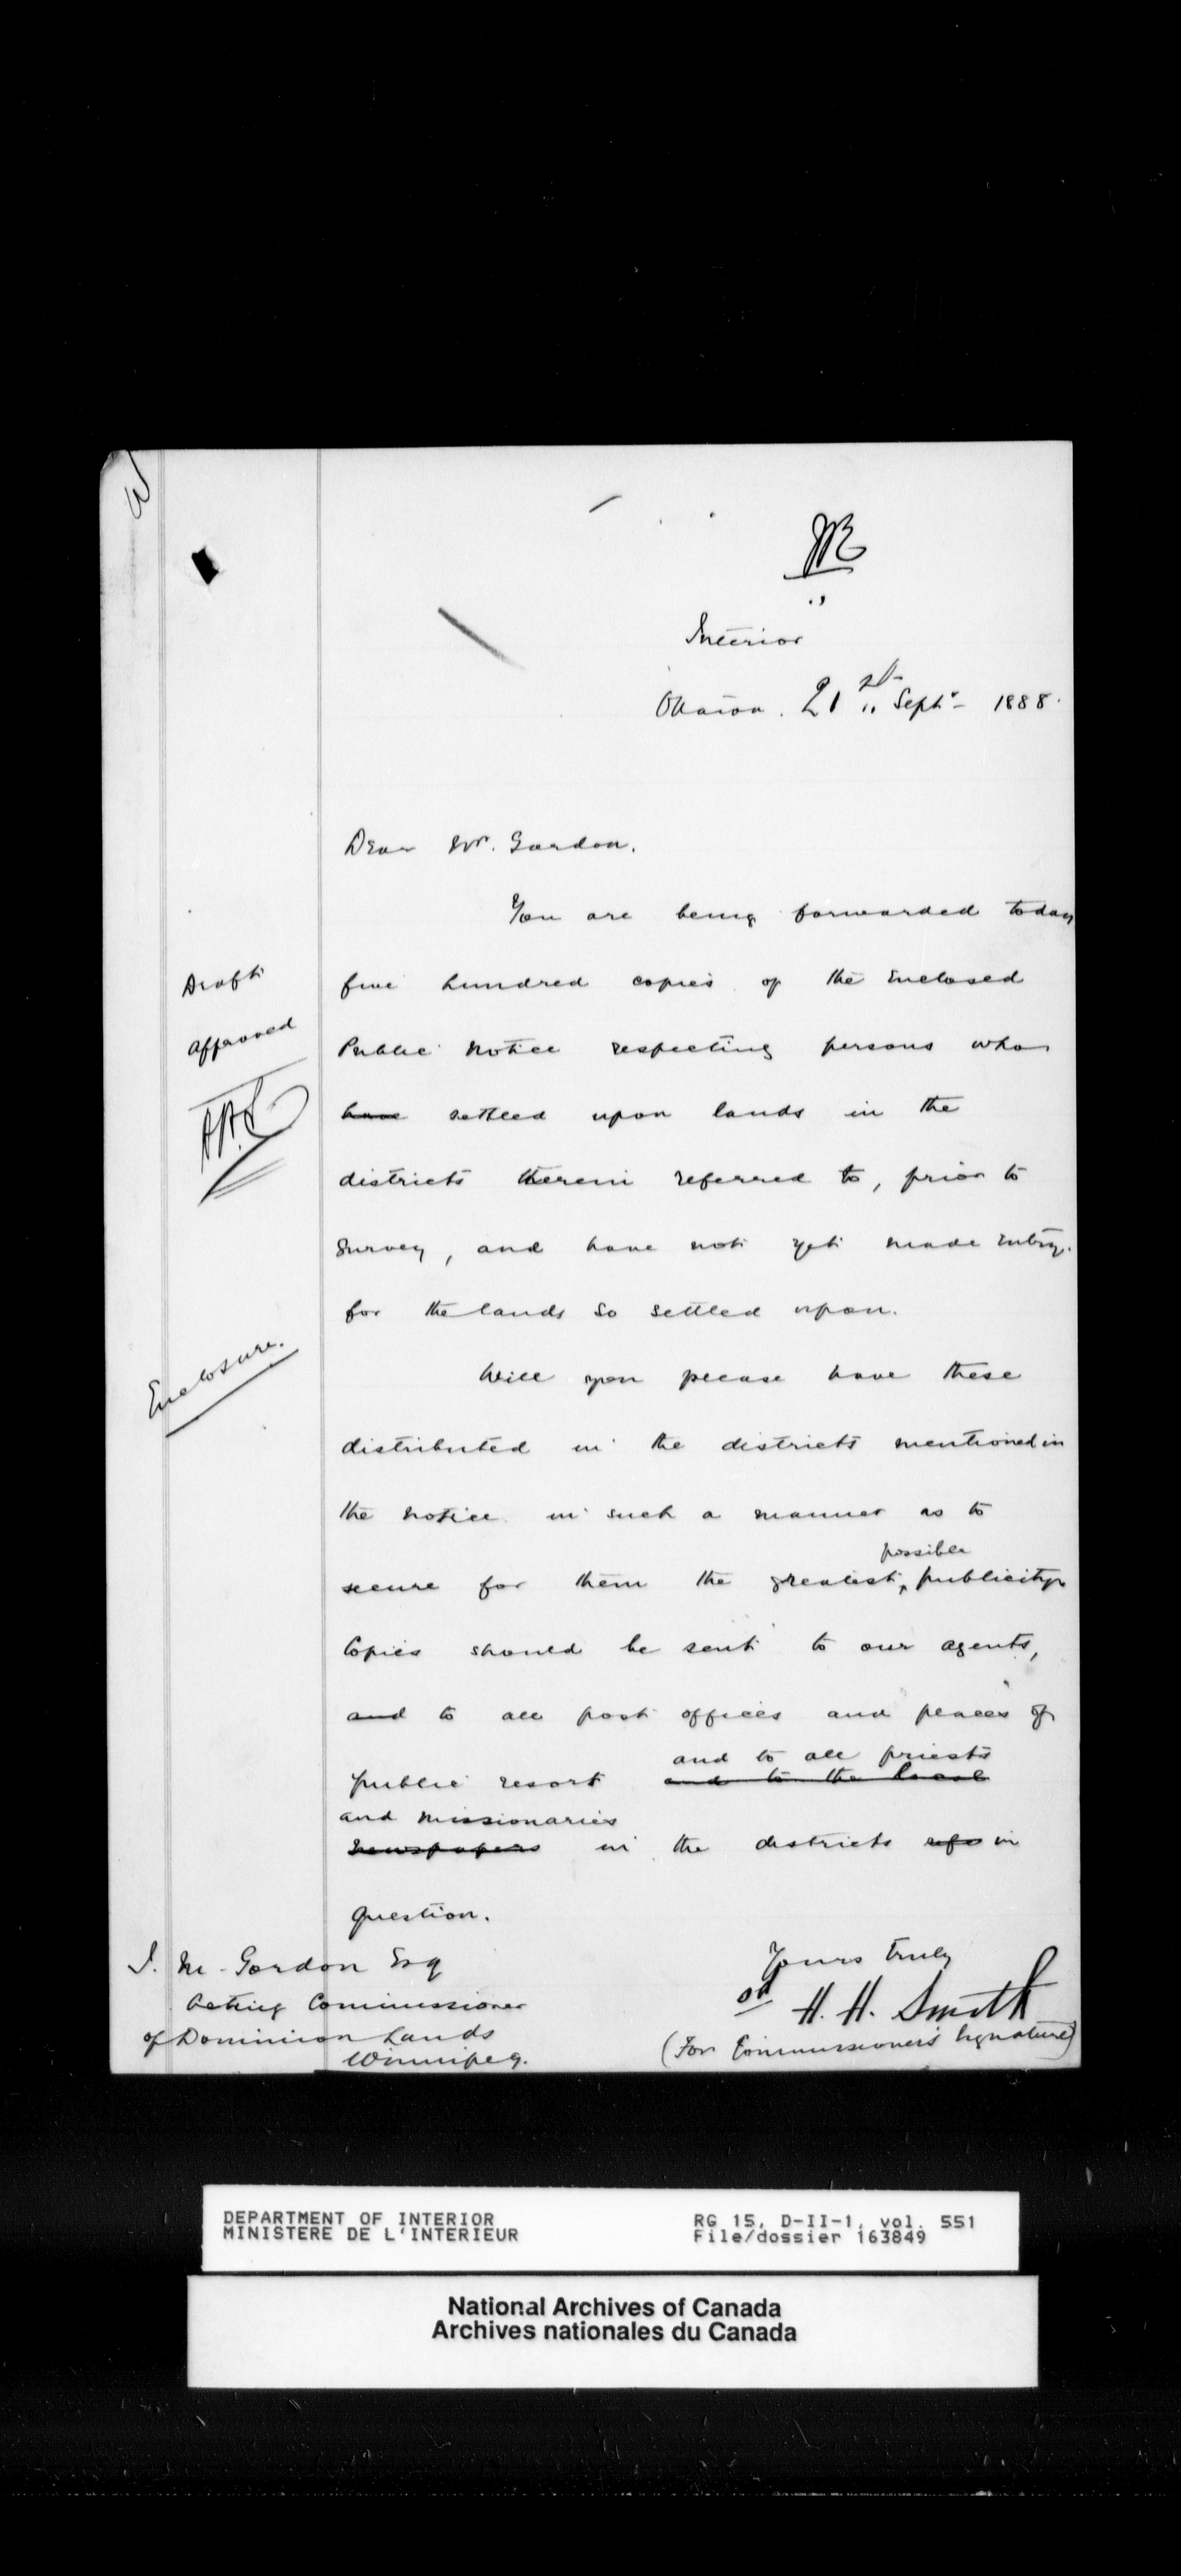 Interior
Ottawa. 21st Sept. 1888.
Dear Mr. Gordon,
You are being forwarded today
Draft
five hundred copies of the enclosed
Approved
Public Notice respecting persons who
have settled upon lands in the
districts therein referred to, prior to
survey, and have not yet made entry
for the lands so settled upon.
Enclosure.
Will you please have these
distributed in the districts mentioned in
the notice in such a manner as to
possible
secure for them the greatest publicity.
Copies should be sent to our agents,
and to all post offices and places of
and to all priests
public resort and to the local
and missionaries
newspapers in the districts refe in
question.
Yours truly
sd H. H. Smith
(For Commissioner's Signature)
J. M. Gordon Esq
Acting Commissioner
of Dominion Lands
Winnipeg.
DEPARTMENT OF INTERIOR
MINISTERE DE L'INTERIEUR
RG 15, D-II-1, vol. 551
File/dossier 163849
National Archives of Canada
Archives nationales du Canada